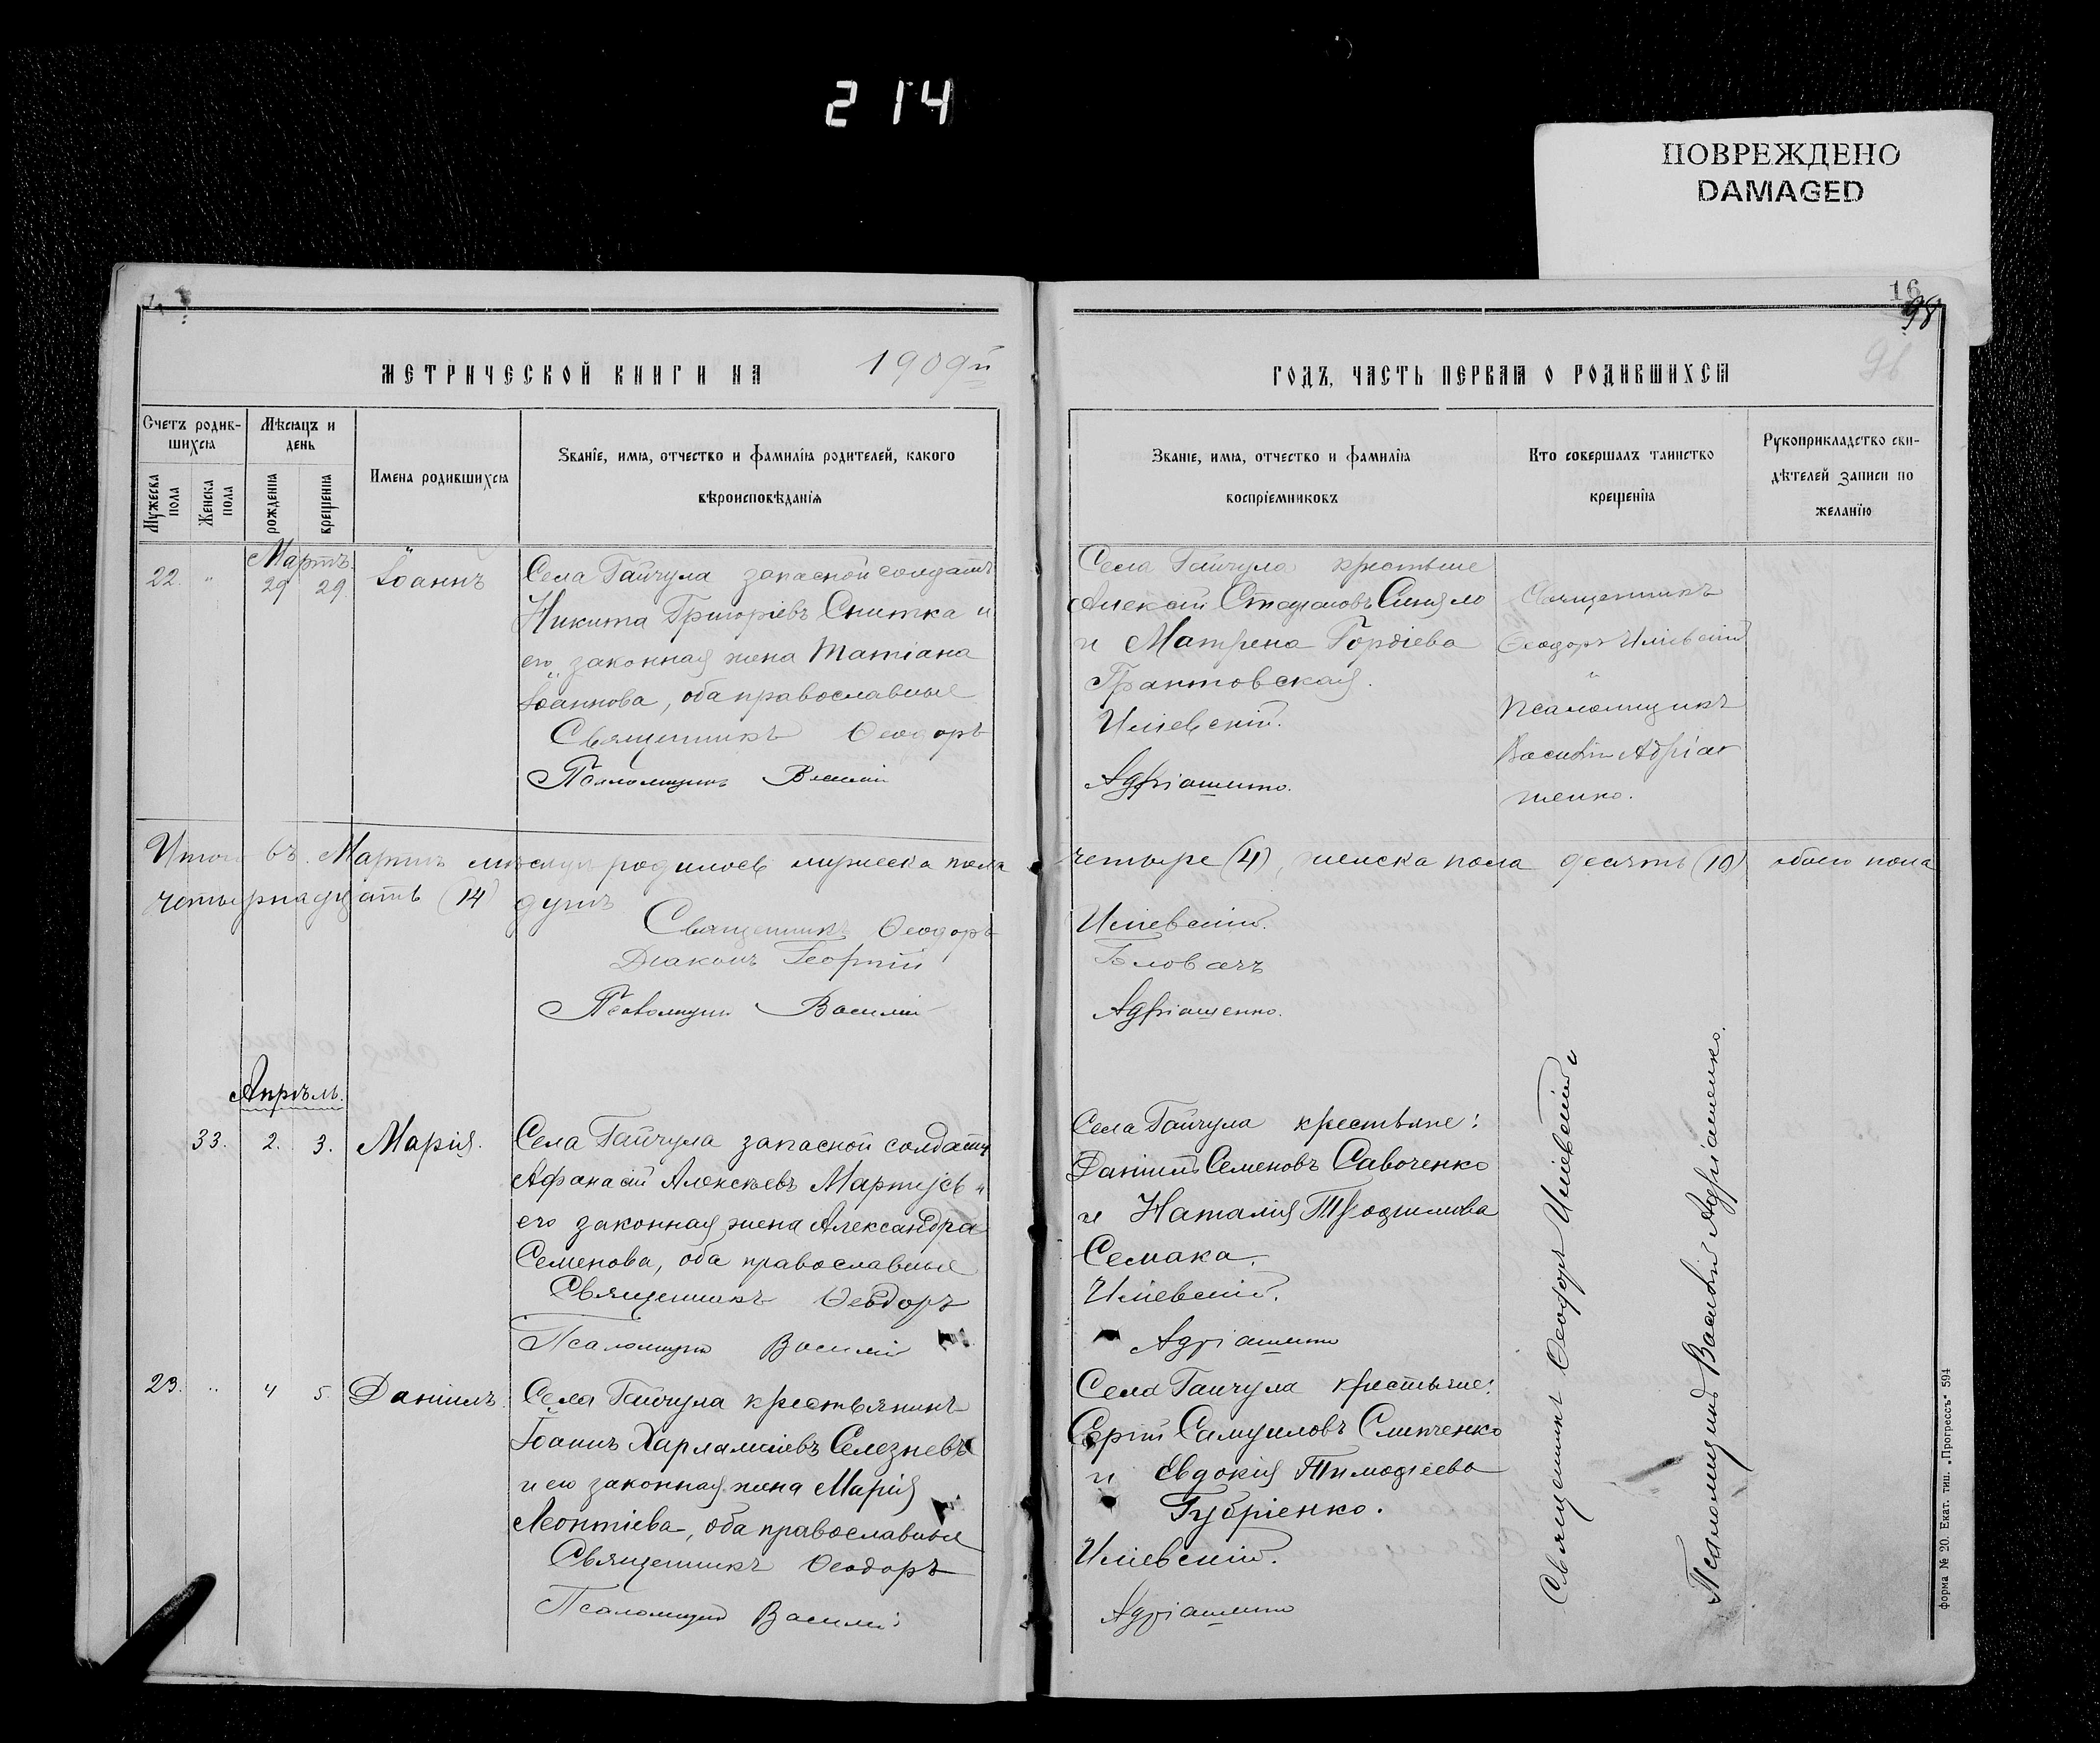 214
ПОВРЕЖДЕНО
DAMAGED
16
98
МЕТРИЧЕСКОЙ КНИГИ НА 1909й
ГОДЪ, ЧАСТЬ ПЕРВАЯ О РОДИВШИХСЯ
96
Счетъ родив-
шихся
Мужеска пола
Женска пола
Мѣсяцъ и
день
рожденія
крещенія
Имена родившихся
Званіе, имя, отчество и фамилія родителей, какого
вѣроисповѣданія
Званіе, имя, отчество и фамилія
воспріемниковъ
Кто совершалъ таинство
крещенія
Рукоприкладство сви-
дѣтелей записи по
желанію
Мартъ.
22. " 29 29 Іоаннъ
Села Гайчула запасной солдатъ
Никита Григоріевъ Снитка и
его законная жена Татіана
Іоаннова, оба православные
Священникъ Ѳеодоръ
Псаломщикъ Василій
Села Гайчула крестьяне
Алексій Стефановъ Синяло
и Матрена Гордіева
Грантовская.
Иліевскій.
Адріашенко.
Священникъ
Ѳеодоръ Иліевскій
и
Псаломщикъ
Василій Адріа
шенко.
Итого въ Мартѣ мѣсяцѣ родилось мужеска пола четыре (4), женска пола десять (10) обоего пола
четырнадцать (14) душъ
Священникъ Ѳеодоръ Иліевскій.
Діаконъ Георгій
Псаломщикъ Василій Адріашенко.
Апрѣль.
33. 2. 3. Марія.
Села Гайчула запасной солдатъ
Афанасій Алексѣевъ и
его законная жена Александра
Семенова, оба православные
Священникъ Ѳеодоръ
Псаломщикъ Василій
Села Гайчула крестьяне:
Даніилъ Семеновъ Савоченко
и Наталія Трофимова
Семака.
Иліевскій.
Адріашенко
23. " 4 5. Даніилъ.
Села Гайчула крестьянинъ
Іоаннъ Харлампіевъ Селезневъ
и его законная жена Марія
Леонтіева, оба православные
Священникъ Ѳеодоръ
Псаломщикъ Василій
Села Гайчула крестьяне:
Сергій Самуиловъ Слипченко
и Евдокія Тимофеева
Губріенко.
Иліевскій.
Адріашенко
Священникъ Ѳеодоръ Иліевскій и
Псаломщикъ Василій Адріашенко.
Форма № 20. Екат. тип. „Прогрессъ" 594